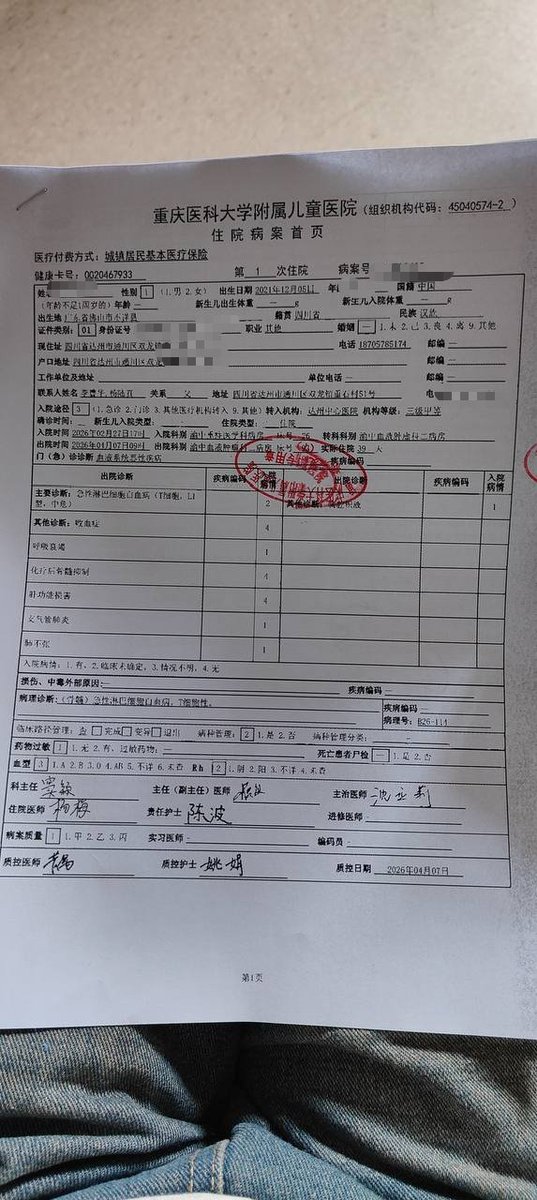 重庆医科大学附属儿童医院（组织机构代码：45040574-2）
住院病案首页
医疗付费方式：城镇居民基本医疗保险
健康卡号：0020467933 第 1 次住院 病案号
性别 1 (1.男 2.女) 出生日期 2021年12月05日 国籍 中国
(年龄不足1周岁的) 年龄 — 新生儿出生体重 — g 新生儿入院体重 — g
出生地 籍贯 四川省 民族 汉族
证件类别：01 身份证号 职业 其他 婚姻 — 1.未 2.已 3.丧 4.离 9.其他
现住址 四川省达州市通川区双龙镇 电话 18705785174 邮编 —
户口地址 四川省达州市通川区双龙 邮编 —
工作单位及地址 单位电话 — 邮编 —
联系人姓名 关系 父 地址 四川省达州市通川区双龙镇 51号
入院途径 3 (1.急诊 2.门诊 3.其他医疗机构转入 9.其他) 转入机构：达州中心医院 机构等级：三级甲等
确诊时间： 新生儿住院类型： 住院类型：
入院时间 2026年02月27日17时 入院科别 转科科别 渝中血液肿瘤科二病房
出院时间 2026年04月07日09时 出院科别 渝中血液肿瘤科二病房 实际住院 39 天
门（急）诊诊断 血液系统恶性疾病 疾病编码
出院诊断 疾病编码 入院病情 出院诊断 疾病编码 入院病情
主要诊断：急性淋巴细胞白血病（T细胞，L1型，中危） 2 其他诊断： 1
其他诊断：败血症 4
呼吸衰竭 1
化疗后骨髓抑制 4
肝功能损害 4
支气管肺炎 1
肺不张 1
入院病情：1.有，2.临床未确定，3.情况不明，4.无
损伤、中毒外部原因：— 疾病编码
病理诊断：（骨髓）急性淋巴细胞白血病，T细胞性。 疾病编码
病理号：B26-114
临床路径管理：□完成 □变异 □退出 病种管理：2 1.是 2.否 病种管理分类：
药物过敏 1 1.无 2.有，过敏药物：— 死亡患者尸检 — 1.是 2.否
血型 3 1.A 2.B 3.O 4.AB 5.不详 6.未查 Rh 2 1.阴 2.阳 3.不详 4.未查
科主任 主任（副主任）医师 主治医师
住院医师 杨梅 责任护士 陈波 进修医师
病案质量 1 1.甲 2.乙 3.丙 实习医师 编码员
质控医师 质控护士 姚娟 质控日期 2026年04月07日
第1页